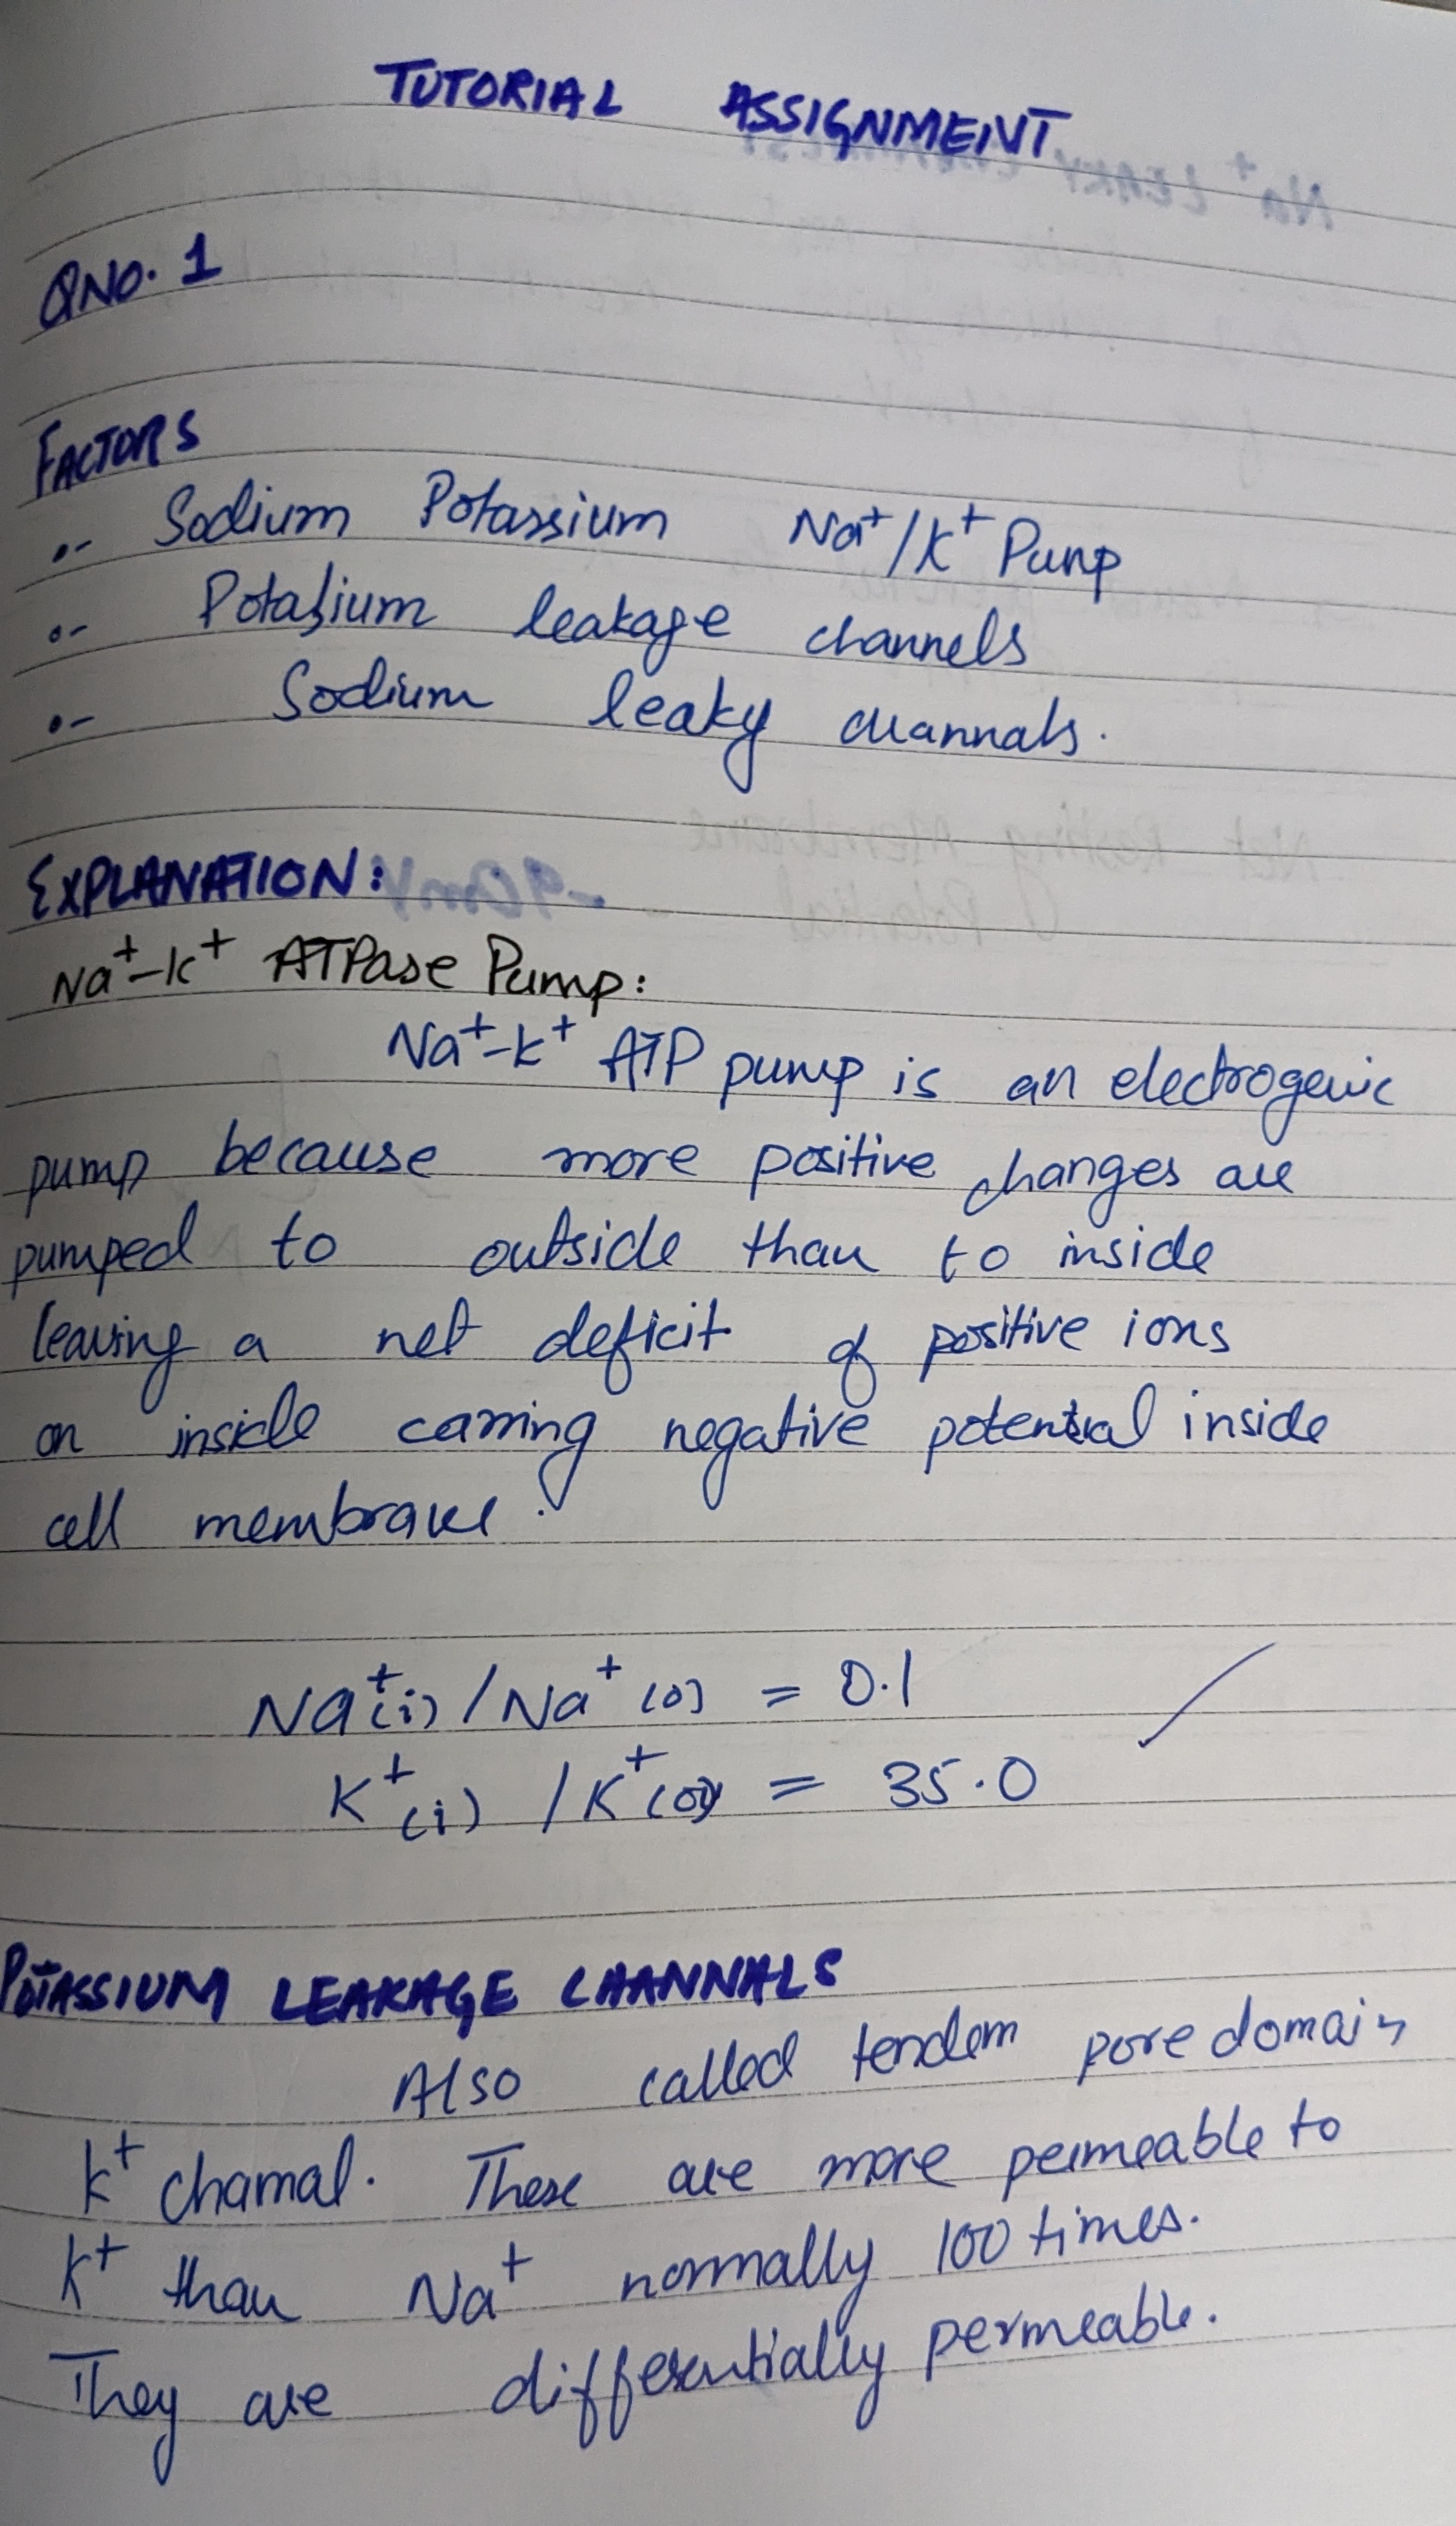 TUTORIAL ASSIGNMENT
QNO. 1
FACTORS
Sodium Potassium Na⁺/K⁺ Pump
Potassium leakage channels
Sodium leaky channals.
EXPLANATION:
Na⁺-K⁺ ATPase Pump:
Na⁺-K⁺ ATP pump is an electrogenic
pump because more positive changes are
pumped to outside than to inside
leaving a net deficit of positive ions
on inside negative potential inside
cell membrane.
Na⁺(i) / Na⁺(o) = 0.1
K⁺(i) / K⁺(o) = 35.0
POTASSIUM LEAKAGE CHANNALS
Also called tendem pore domain
K⁺ channal. These are more permeable to
K⁺ than Na⁺ normally 100 times.
They are differentially permeable.